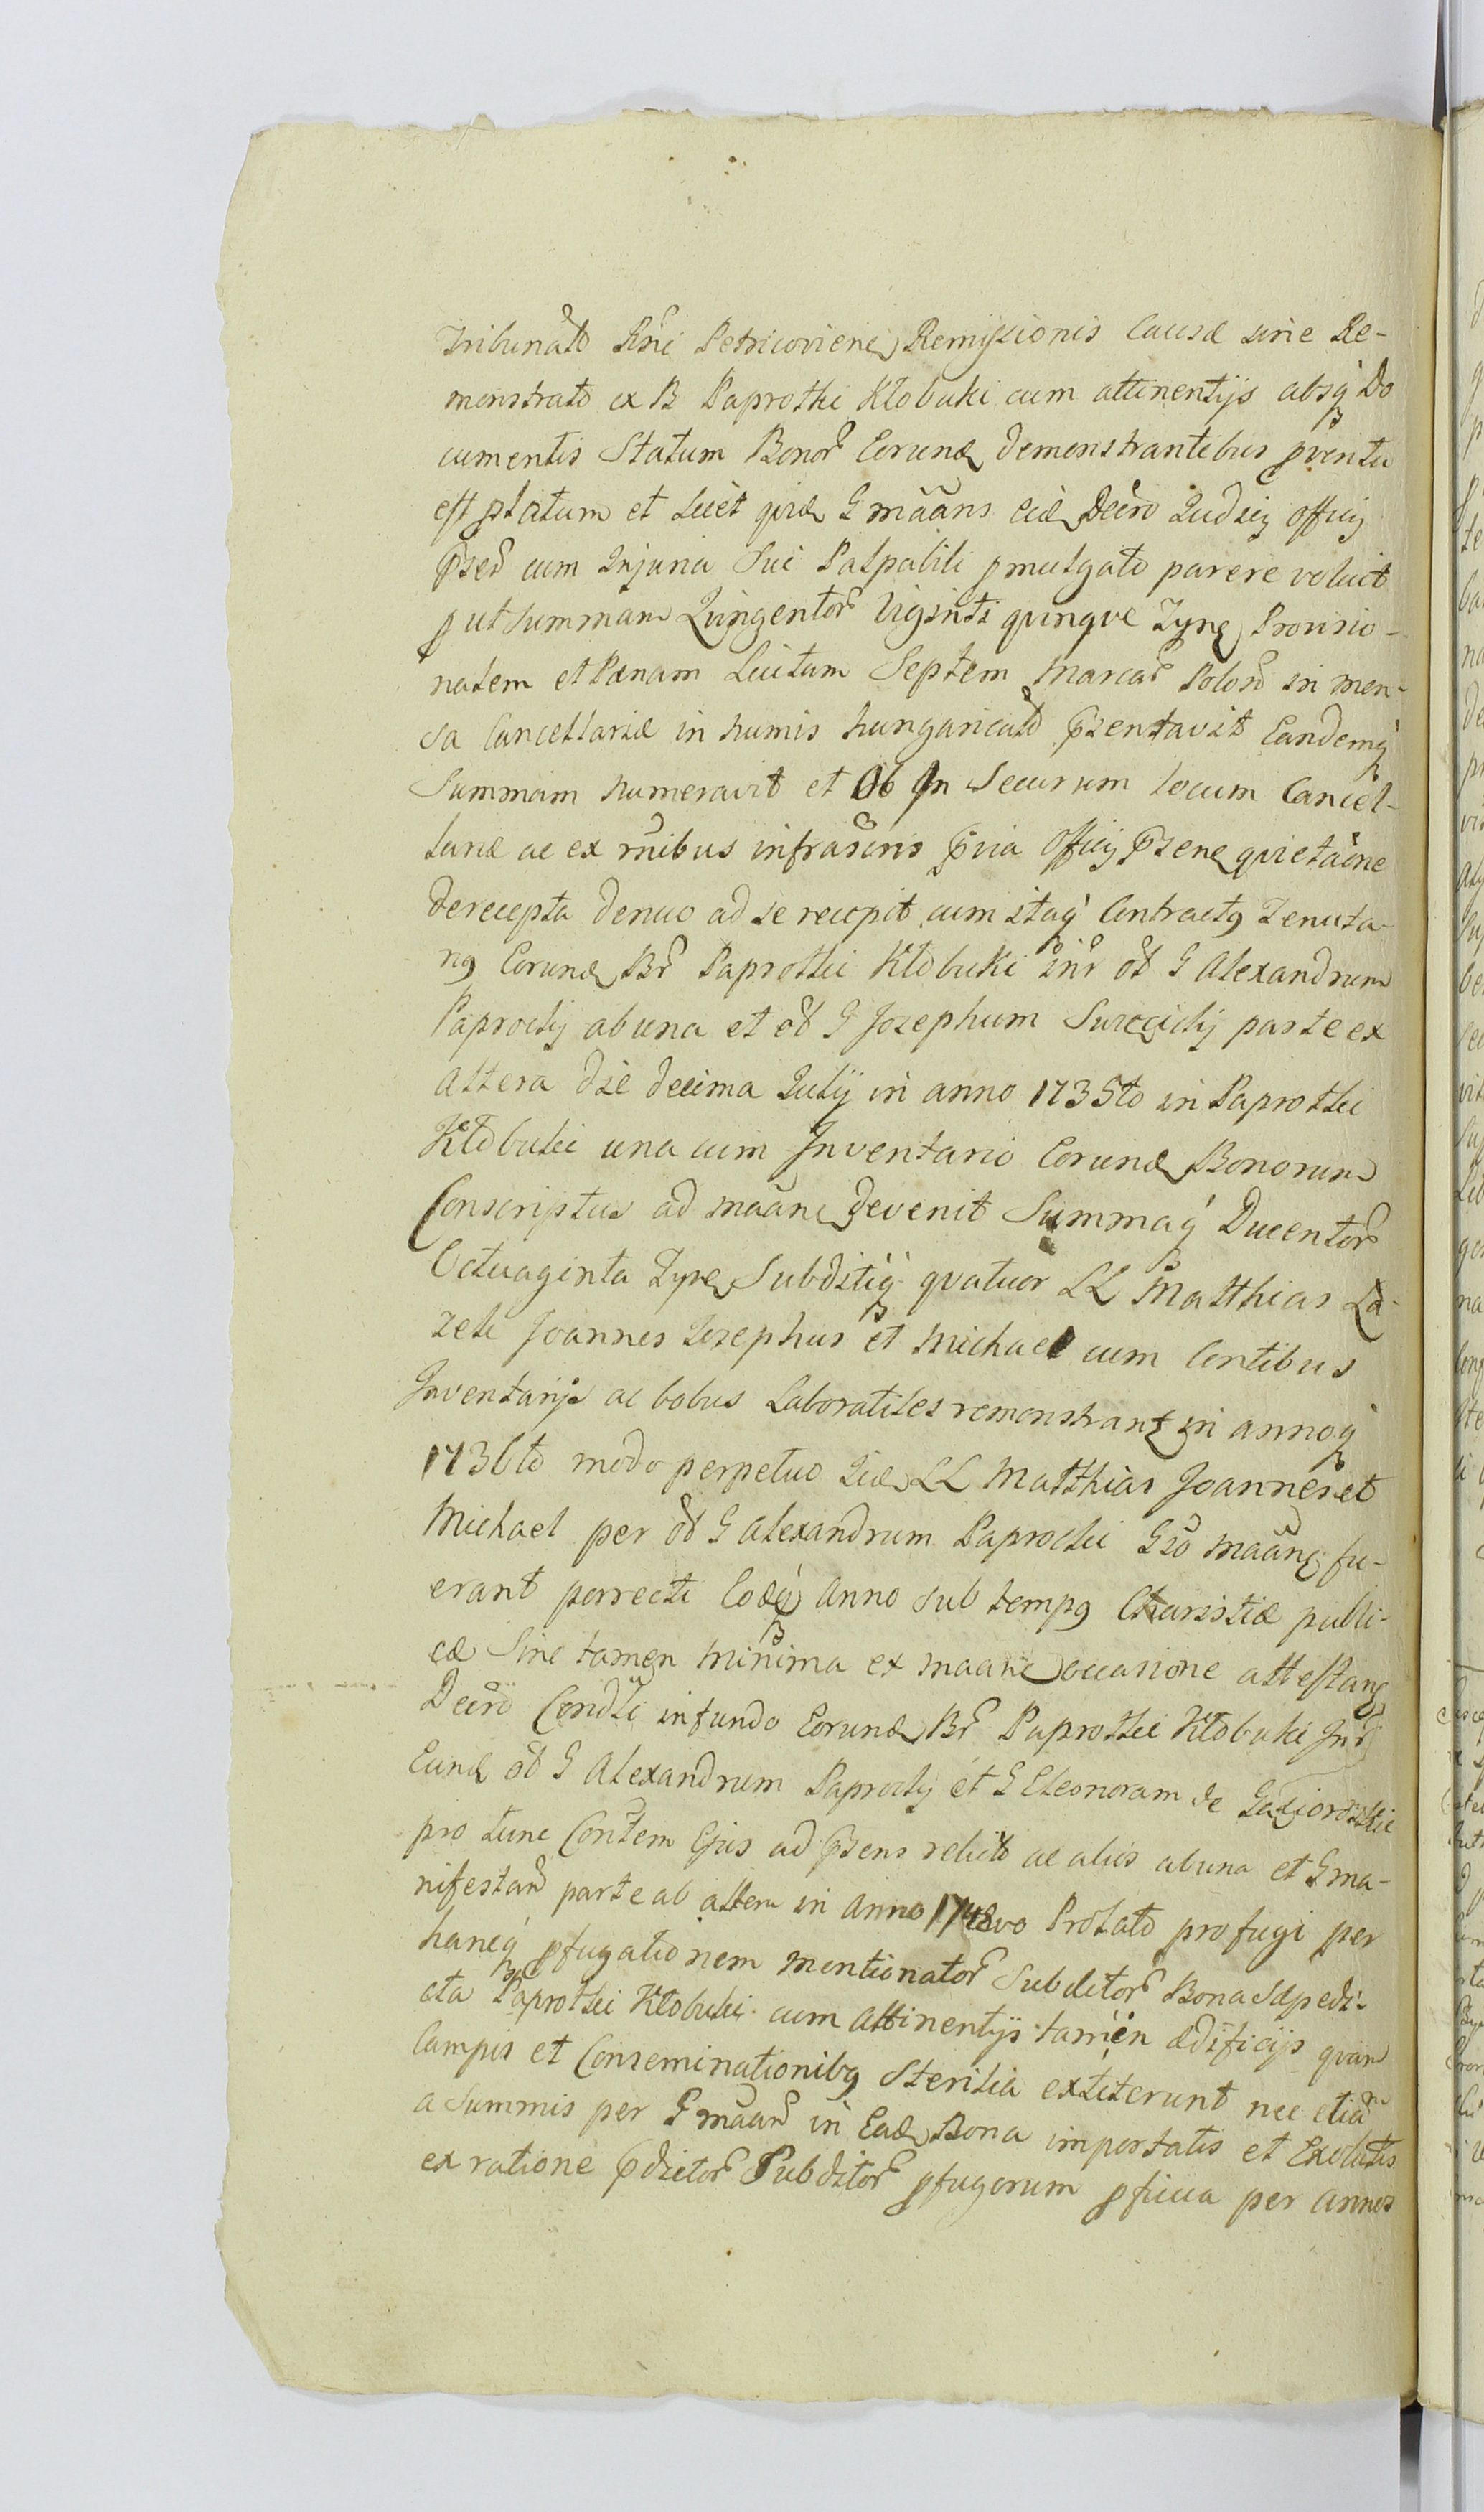 Tribunalb Rñi Petricovienę Remissionis Causæ sine Re-
monstrato ex B Paprotki Kłobuki cum attinentijs absq̃ Do
cumentis Statum Bonor̃ Eorund demonstrantibus pventu
est platum et licèt qvid G mããns eid Decřo Iudicij officij
p̃sed cum Injuria Sui Palpabili pmulgato parere voluit
p ut Summam Qvingentor̃ Viginti qvinqve Tynf Provisio-
nalem et Pænam Luitam Septem Marcar̃ Polon̄ in men-
sa Cancellariæ in numis hungaricalb p̃sentavit Eandemq̃
Summam numeravit et Ob In Securum locum Cancel-
lariæ ac ex r̃nibus infrascris p̃via officij p̃senę qvietãõne
derecepta denuo ad se recepit cum itaq̃ Contractq Tenuta-
rig Eorund Br̃ Paprotki Kłobuki int̃r õl G Alexandrum
Paprocky ab una et õl G Josephum Suroczicky parte ex
altera die decima Julij in anno 1735to in Paprotki
Kłobuki una cum Inventario Eorund Bonorum
Conscriptus ad mãanę devenit Summaq̃ Ducentor̃
Octvaginta Tynf Subditiq̃ qvatuor LL Matthias La-
zek Joannes Josephus et Michael cum Contibus
Inventarijs ac bobus Laboratiles remonstrant in annoq̃
1736to modo perpetuo Iid LL Matthias Joannes et
Michael per õl G Alexandrum Paprocki Gso mãanti fu-
erant porrecti Eodq̃ Anno sub tempg Charistiæ publi-
cæ Sine tamen minima ex maanę occasione attestanę
Decřo Condli in fundo Eorund Br̃ Paprotki Kłobuki Int̃r
Eund õl G Alexandrum Paprocky et G Eleonoram de Gąsiorowskie
pro tunc Contem Ejus ad p̃sens relictb ac aliis ab una et G ma-
nifestanđ parte ab altera in Anno 1748vo Prolato profugi per
hancq̃ pfugationem mentionator̃ Subditor̃ Bona Sępedi-
cta Paprotki Kłobuki cum Attinentijs tam in ædificijs qvam
Campis et Conseminationibg Sterilia extiterunt nec etiã
a Summis per G mãanđ in Ead Bona importatis et Exolutis
ex ratione p̃dictor̃ Subditor̃ pfugorum pficua per Annos